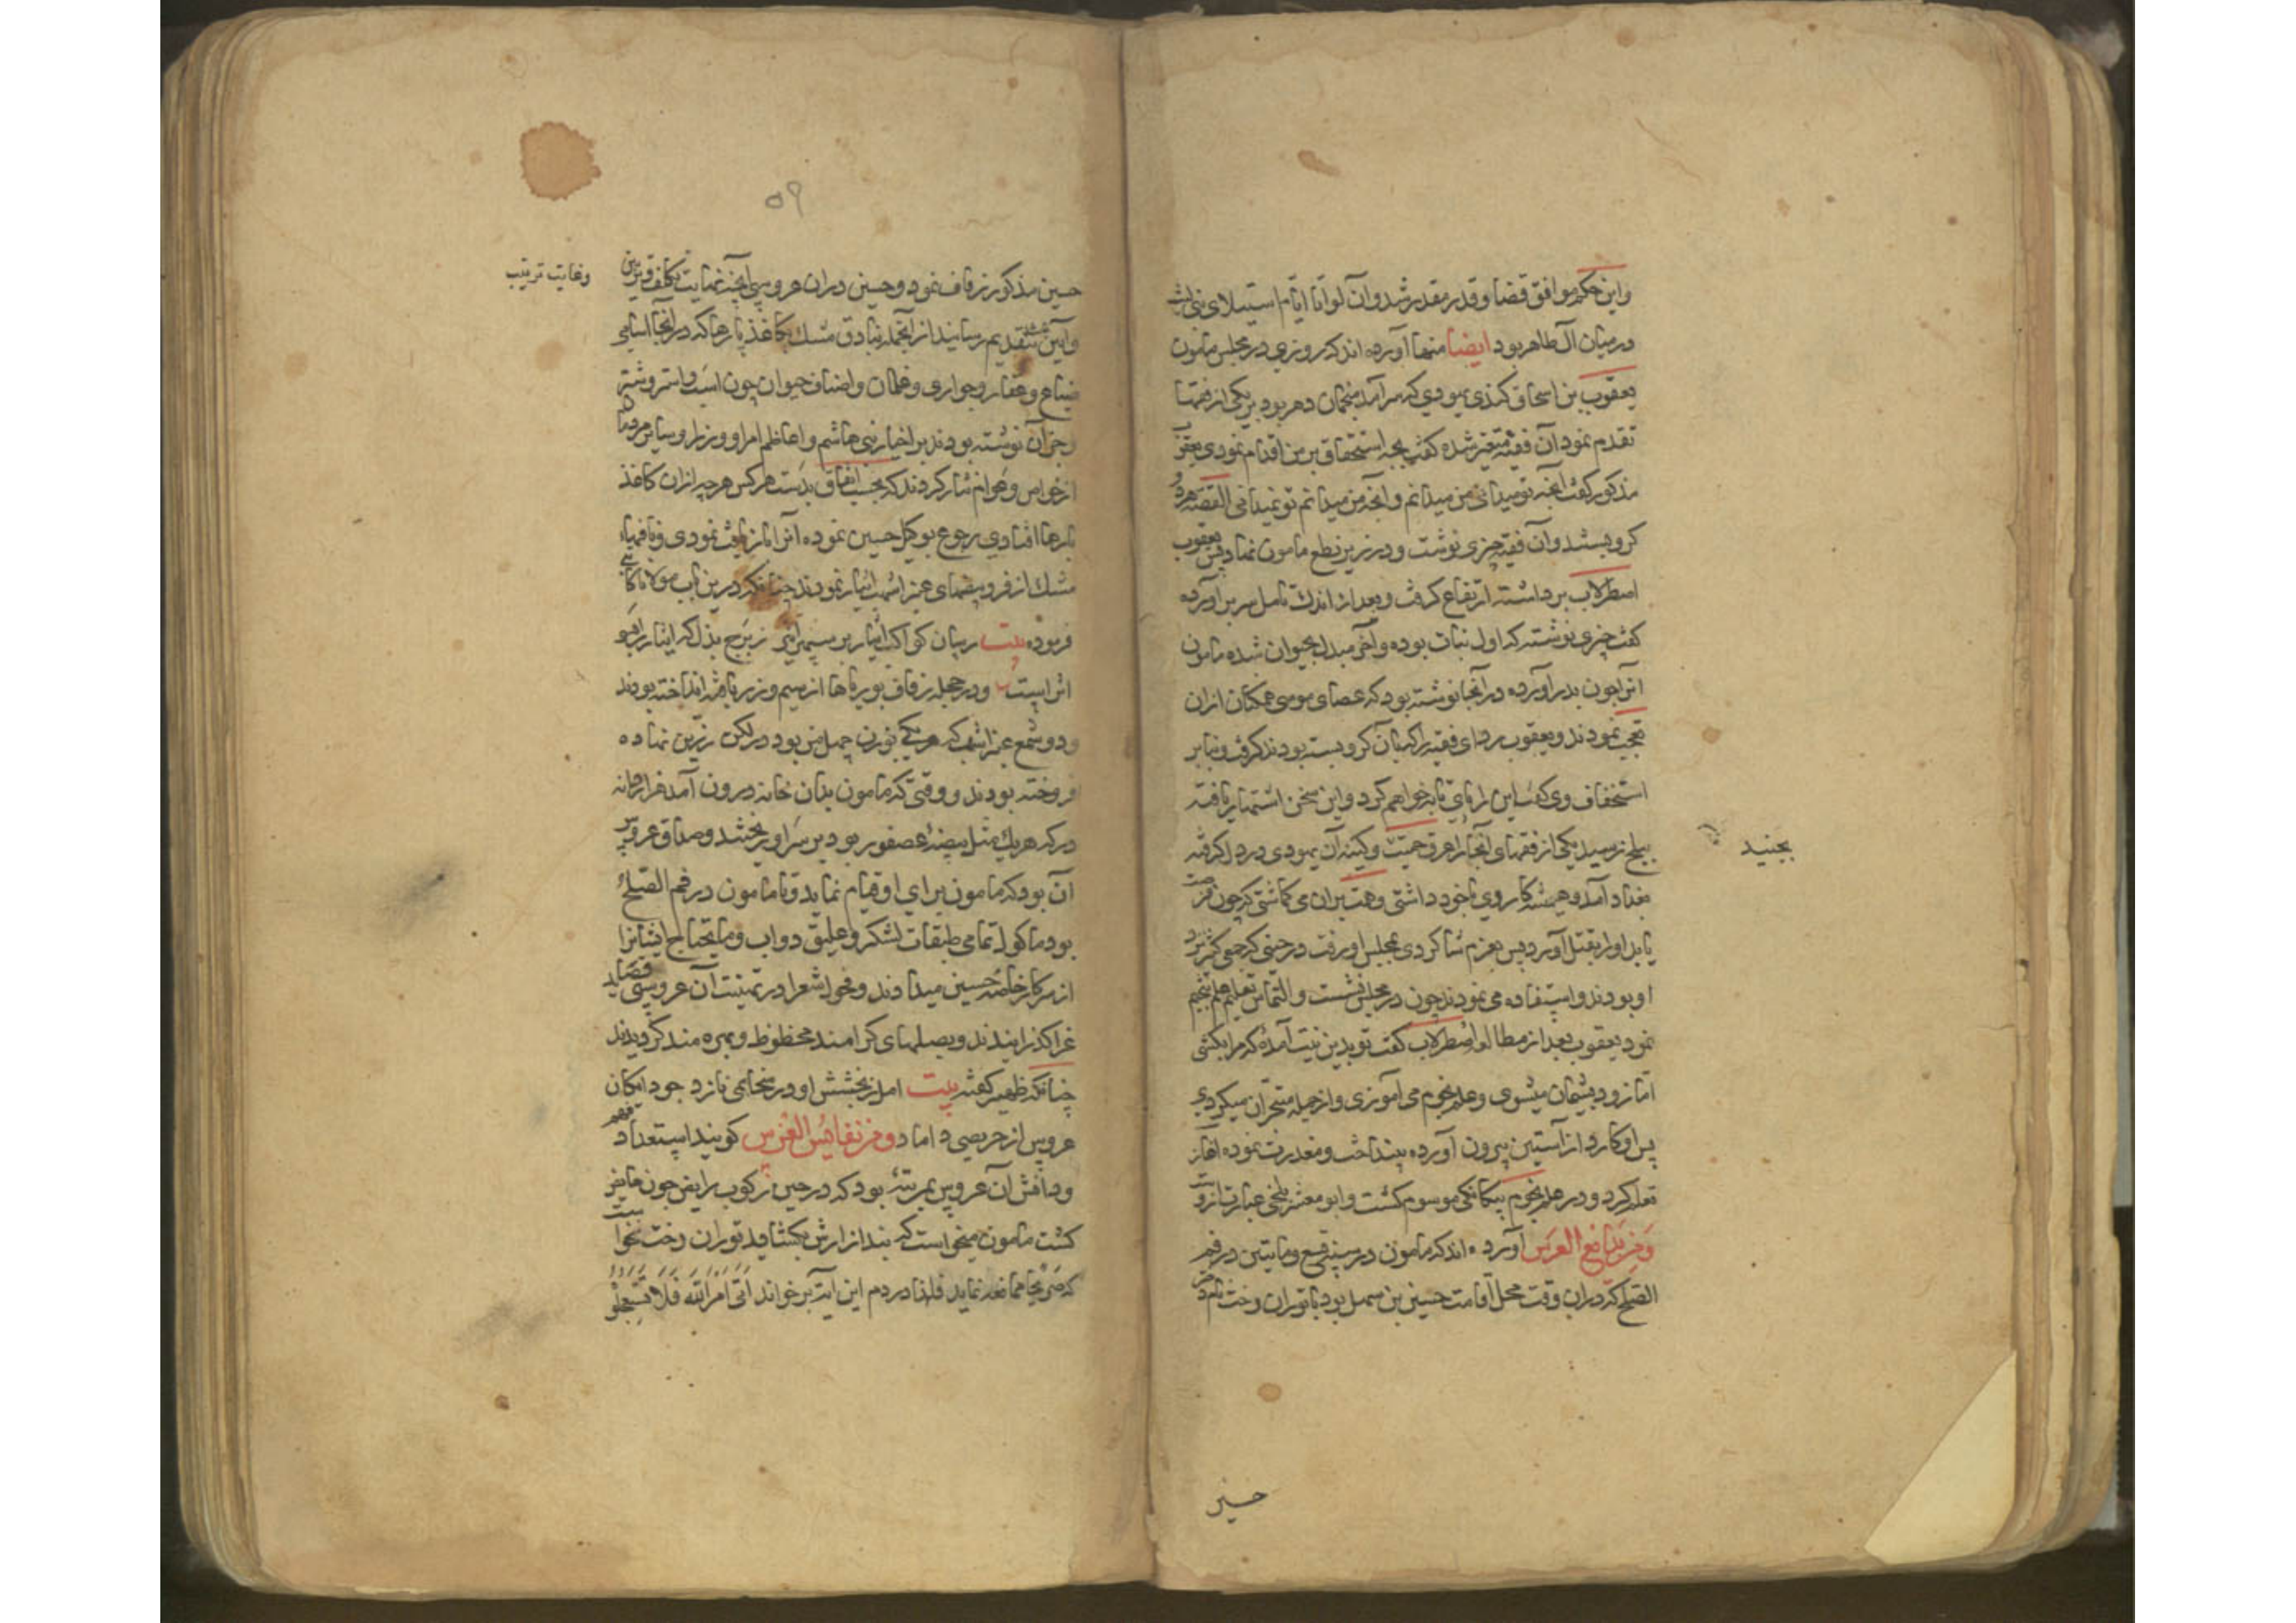 واین حکم موافق قضا و قدر مقدر شد و آن لوا تا ایام استیلای بنی لیث
در میان آل طاهر بود ایضا منها آورده اند که روزی در مجلس مامون
یعقوب بن اسحاق کندی یهودی که سرآمد منجمان دهر بود بر یکی از فقها
تقدم نمود آن فقیه متغیر شده گفت بچه استحقاق بر من اقدام نمودی یعقوب
مذکور گفت آنچه تو میدانی من میدانم و آنچه من میدانم تو نمیدانی القصه هر دو
کرو بستند و آن فقیه چیزی نوشت و در زیر نطع مامون نهاد پس یعقوب
اصطرلاب برداشته ارتفاع کرفت و بعد از اندک تامل سر برآورده
کفت چیزی نوشته که اول نبات بوده و آخر مبدل بحیوان شده مامون
آنرا چون بدر آورده در آنجا نوشته بود که عصای موسی همکنان ازان
تعجب نمودند و یعقوب ردای فقیه را که بآن کرو بسته بودند کرفت و بنابر
استخفاف وی کفت این را پای تابه خواهم کرد و این سخن اشتهار یافته
ببلخ رسید یکی از فقهای آنجا را عرق حمیت و کینه آن یهودی در دل کرفته
بجنبید
بغداد آمد و همیشه کاردی با خود داشتی و همت بران می کماشتی که چون فرصت
یابد او را بقتل آورد پس بعزم شاکردی بمجلس او رفت در حینی که جمعی کثیر نزد
او بودند و استفاده می نمودند چون در مجلس نشست و التماس تعلیم علم تنجیم
نمود یعقوب بعد از مطالعه اصطرلاب کفت تو بدین نیت آمدهٔ که مرا بکشی
اما زود پشیمان میشوی و علم نجوم می آموزی و از جمله متبحران میکردی
پس او کارد از آستین بیرون آورده بینداخت و معذرت نموده آغاز
تعلم کرد و در علم نجوم بیکانکی موسوم کشت و ابو معشر بلخی عبارت ازوست
و من بدایع العرس آورده اند که مامون در سنه تسع و مایتین در فم
الصلح که دران وقت محل اقامت حسین بن سهل بود با توران دخت نام دختر
حسین
۵۹
حسین مذکور زفاف نمود و حسین دران عروسی آنچه نهایت تکلف و تزیین
وغایت ترتیب
و آیین بتقدیم رسانید از آنجمله بنادق مشک بکاغذ پارها که در آنجا اسامی
ضیاع و عقار و جواری و غلمان و اصناف حیوان چون اسب و استر و شتر
و جز آن نوشته بودند بر اخیار بنی هاشم و اعاظم امرا و وزرا و سایر مردمان
از خواص و عوام نثار کردند که بحسب اتفاق بدست هر کس هرچه ازان کاغذ
پارها افتادی رجوع بوکیل حسین نموده آنرا بازیافت نمودی و نافهای
مشک از فر و بیضهای عنبر اشهب ایثار نمودند چنانکه درین باب مولانا کاتبی
فرموده بیت
ودر حجله زفاف بوریاها از سیم و زر بافته انداخته بودند
و دو شمع عنبر اشهب که هر یکی بوزن چهل من بود در لکن زرین نهاده
افروخته بودند و وقتی که مامون بدان خانه درون آمد هزار دانه
در که هر یک مثل بیضهٔ عصفور بود بر سر او ریختند و صداق عروس
آن بود که مامون برای او قیام نماید و تا مامون در فم الصلح
بود ماکول تمامی طبقات لشکر و علیق دواب و مایحتاج ایشانرا
از سرکار خاصه حسین میدادند و فحول شعرا در تهنیت آن عروسی قصاید
غرا کذرانیدند و بصلهای کرامند محظوظ و بهره مند کردیدند
چنانکه ظهیر کفته بیت امل ز بخشش او در سخای نازد جود امکان
عروس از حریصی داماد و من نفایس العرس کویند استعداد فهم
و دانش آن عروس بمرتبهٔ بود که در حین رکوب رایض چون حایض
کشت مامون میخواست که بند ازارش بکشاید توران دخت نخواست
که صریحا ممانعه نماید فلهذا در دم این آیت برخواند اتی امر الله فلا تستعجلوه